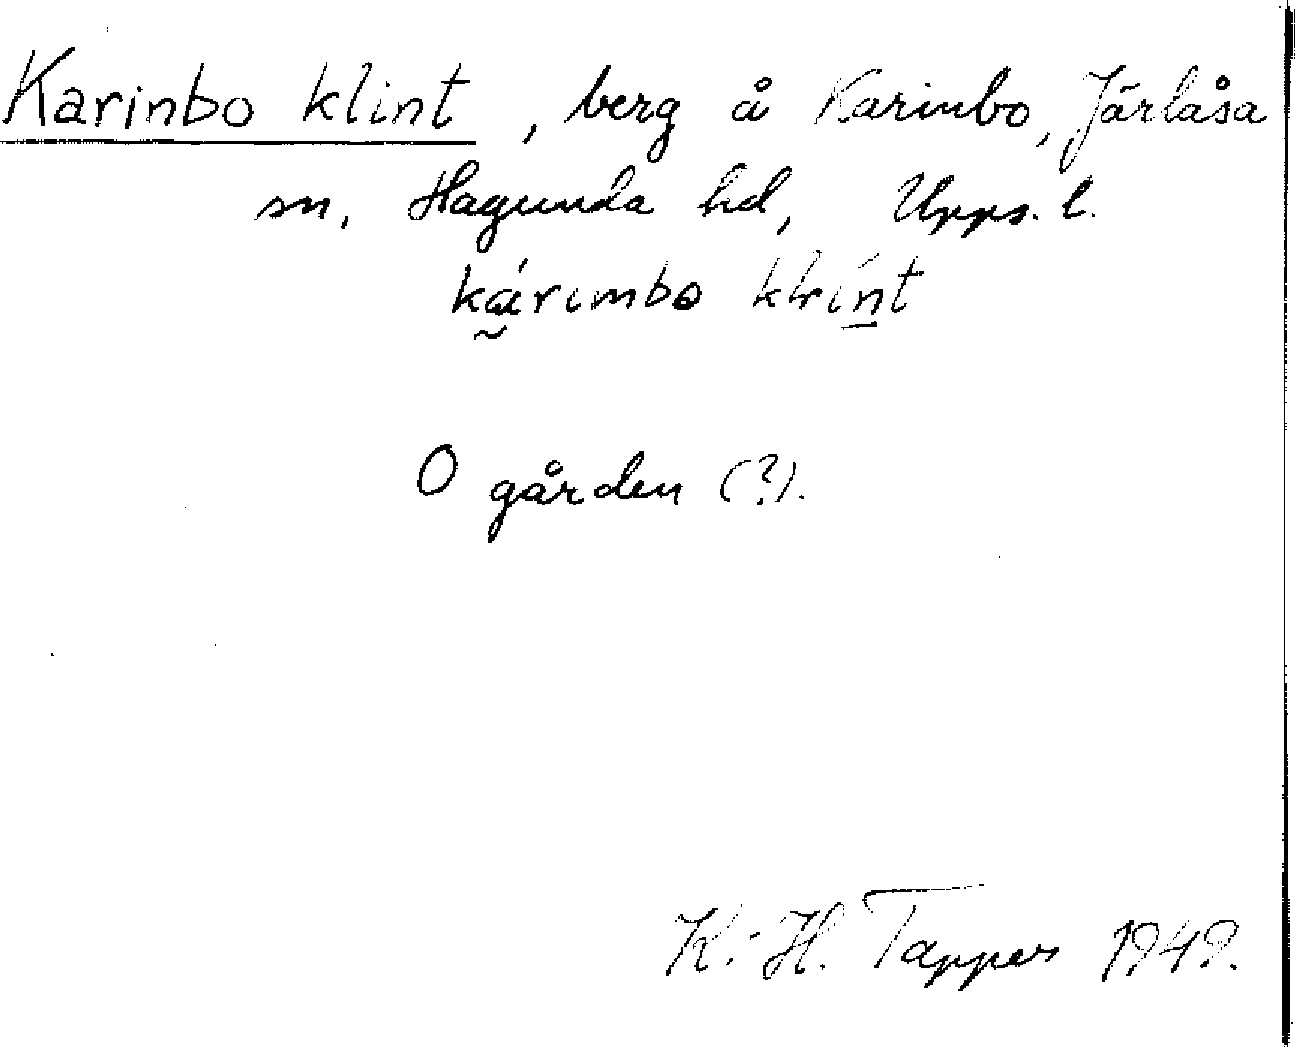 Karinbo klint, berg å Karinbo, Järlåsa
sn, Hagunda hd, Upps. l.
ká̰rımbo klíṉt
O gården (?).
K.-H. Tapper 1949.